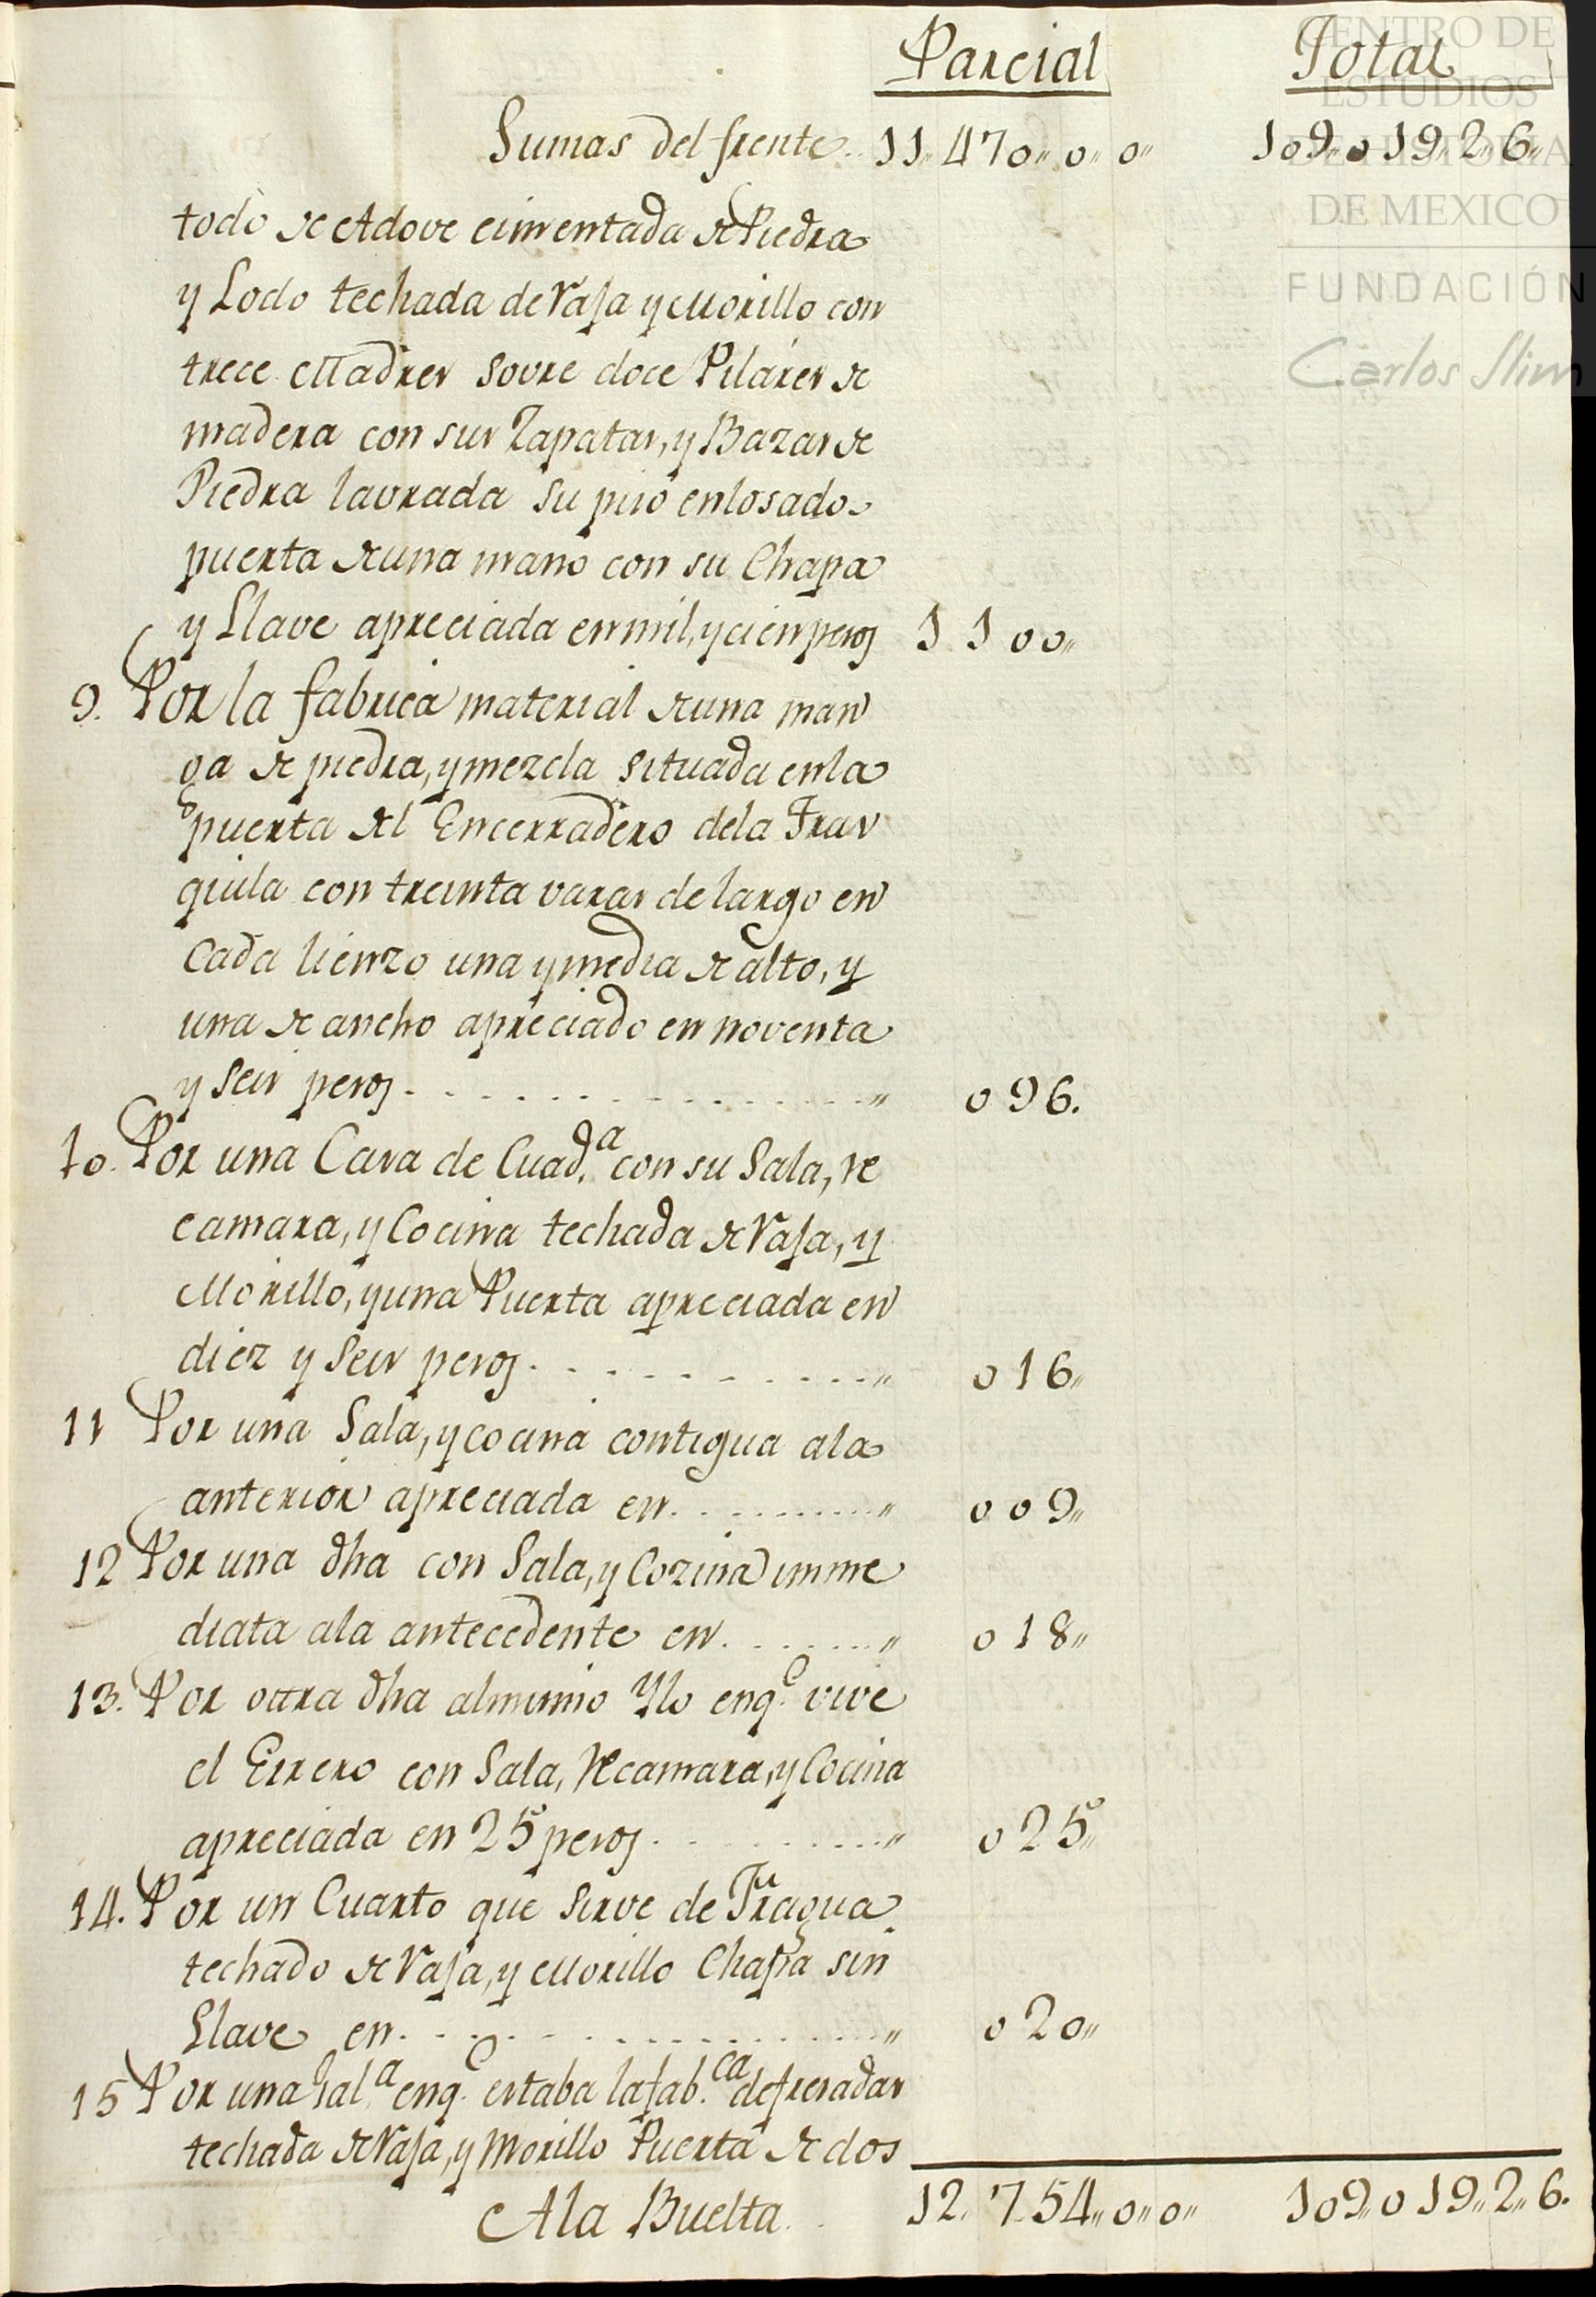 Parcial Total
Sumas del frente.. 11,,470,,0,,0,, 109,,019,,2,,6,,
todo de Adove cimentada de Piedra
y Lodo techada de Vaja y Morillo con
trece Madres sovre doce Pilares de
madera con sus Zapatas, y Bazas de
Piedra lavrada su piso enlosado
puerta de una mano con su Chapa
y Llave apreciada en mil, y cien pesos 1100,,
9. Por la fabrica material de una man
ga de piedra, y mezcla situada en la
puerta del Encerradero de la Tras
quila con treinta varas de largo en
cada lienzo una y media de alto, y
una de ancho apreciado en noventa
y seis pesos. . . . . . . . . . . . . . ,, 096.
10. Por una Casa de Cuad.ª con su Sala, re
camara, y Cocina techada de Vaja, y
Morillo, y una Puerta apreciada en
diez y seis pesos. . . . . . . . . . ,, 016,,
11 Por una Sala, y cocina contigua a la
anterior apreciada en. . . . . . . . ,, 009,,
12 Por una dha con Sala, y Cozina imme
diata a la antecedente en. . . . . . ,, 018,,
13. Por otra dha al mismo Ylo en q.e vive
el Errero con Sala, Recamara, y Cocina
apreciada en 25 pesos. . . . . . . . ,, 025,,
14. Por un Cuarto que sirve de Fragua
techado de Vaja, y Morillo Chapa sin
Llave en. . . . . . . . . . . . . . ,, 020,,
15 Por una Sal.ª en q.e estaba la fab.ca de fresadas
techada de Vaja, y Morillo Puerta de dos
A la Buelta. . 12,,754,,0,,0,, 109,,019,,2,,6.
CENTRO DE
ESTUDIOS
DE HISTORIA
DE MEXICO
FUNDACIÓN
Carlos Slim